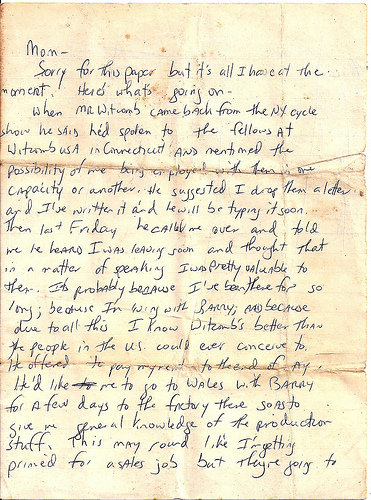 Mom-
Sorry for this paper but it's all I have at the
moment. Here's what's going on-
When MR. Witcomb came back from the NY cycle
show he said he'd spoken to the fellows At
Witcomb USA in Connecticut AND mentioned the
possibility of me being employed with them in one
capacity or another. He suggested I drop them a letter
and I've written it and he will be typing it soon.
Then last Friday he called me over and told
me he heard I was leaving soon and thought that
in a matter of speaking I was pretty valuable to
them. It's probably because I've been there for so
long; because I'm living with BARRY; AND because
due to all this I know Witcomb's better than
the people in the U.S. could ever conceive to.
He offered to pay my rent to the end of
He'd like me to go to WALES with BARRY
for A few days to the factory there so AS to
give me general knowledge of the production
stuff. This may sound like I'm getting
primed for a sales job but they're going to